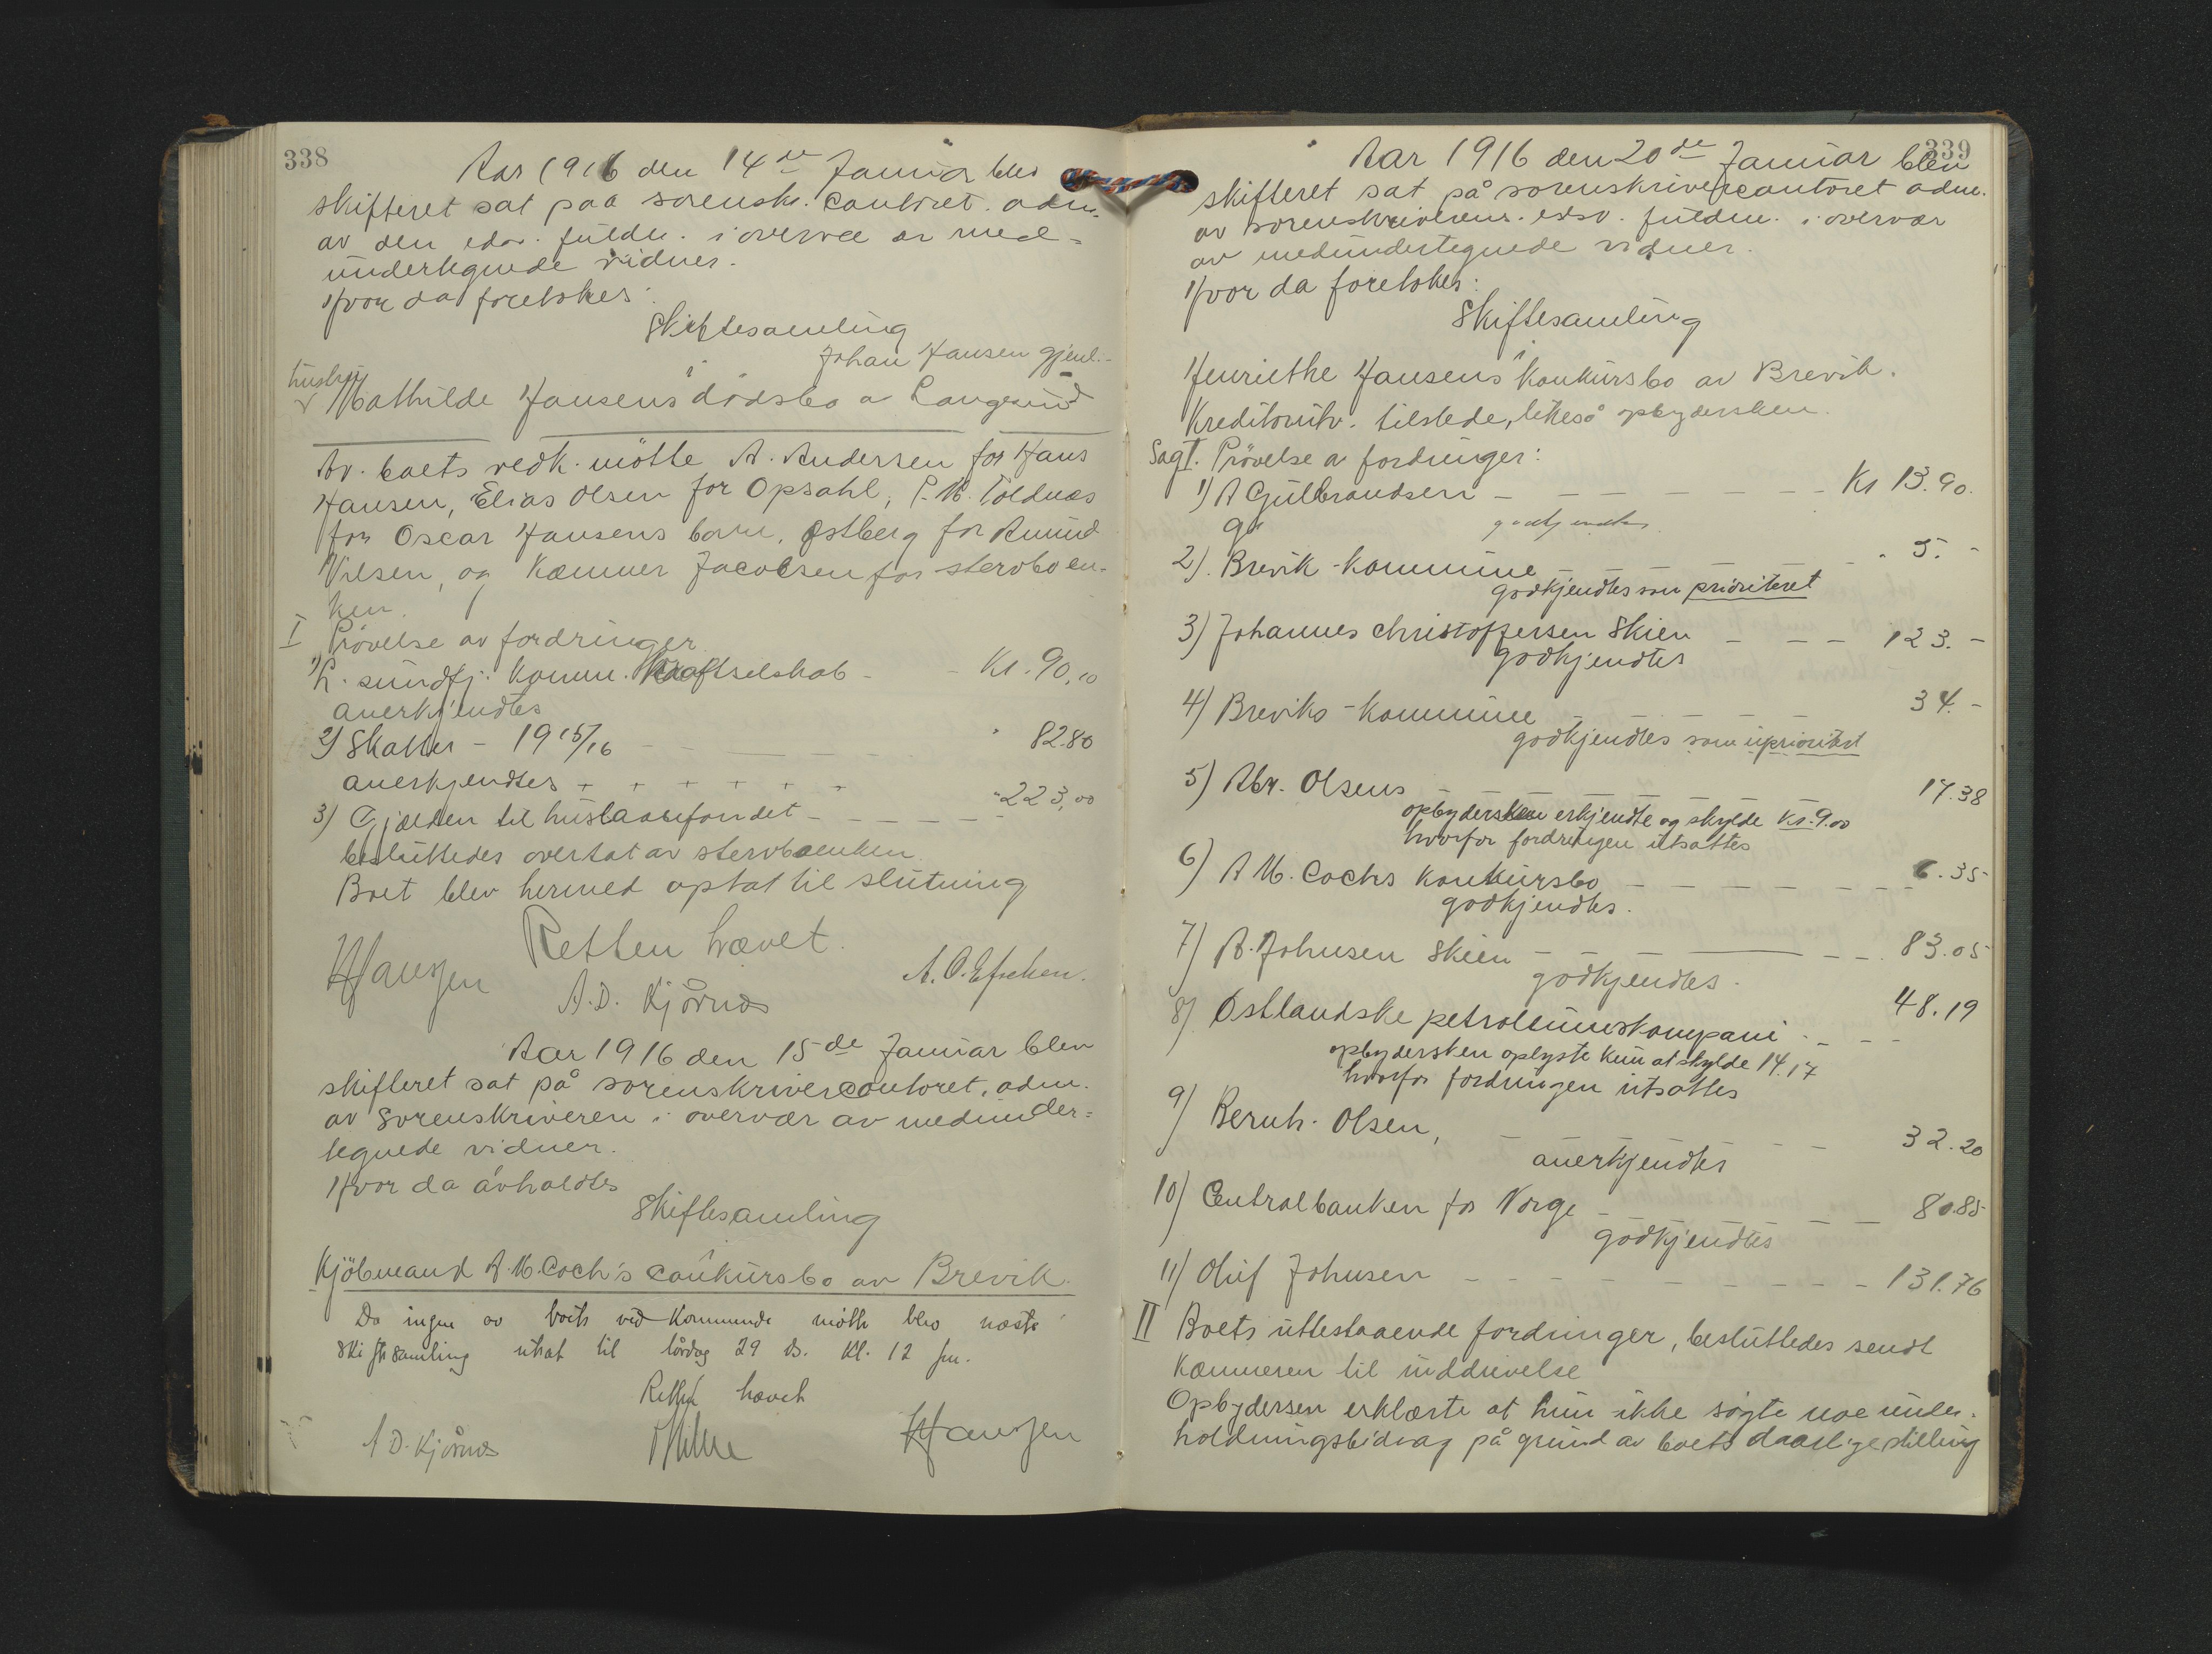 338
Aar 1916 den 14de Januar blev
skifteret sat paa sorenskr. contoret. adm.
av den edsv. fuldm. i overvær av med-
undertegnede vidner.
Hvor da foretokes:
Skiftesamling
i
Johan Hansen gjenl.
hustru
Mathilde Hansens dödsbo a Langesund
Av. boets vedk. mötte A. Andersen for Hans
Hansen, Elias Olsen for Opsahl, P. M. Toldnæs
for Oscar Hansens barn, Østberg for Amund
Nilsen, og Kæmner Jacobsen for stervboen-
ken.
I Prövelse av fordringer
1) L. sundfj. Komm. Kraftselskab - - Kr. 90,10
anerkjendtes
2) Skatter - 1915/16 - - " 82.80
anerkjendtes + + + + + +
3) Gjælden til huslaanefondet - - - - - - 223,00
besluttedes overtat av stervboenken.
Boet blev hermed optat til slutning
Retten hævet.
HHansen
A.D. Kjörnæs
Aar 1916 den 15de Januar blev
skifteret sat på sorenskrivercontoret, adm.
av Sorenskriveren i overvær av medunder=
tegnede vidner.
Hvor da avholdtes
Skiftesamling
i
Kjöbmand A.M. Coch's conkursbo av Brevik.
Da ingen av boets vedkommende mötte blev næste
skiftesamling utsat til lördag 29 ds. Kl. 12 fm.
Retten hævet
A D. Kjörnæs
HHansen
339
Aar 1916 den 20de Januar blev
skifteret sat på sorenskrivercontoret adm.
av sorenskriverens edsv. fuldm. i overvær
av medundertegnede vidner.
Hvor da foretokes:
Skiftesamling
i
Henriethe Hansens konkursbo av Brevik.
Kreditorutv. tilstede, likeså opbydersken.
Sag I. Prövelse a fordringer:
1) A Gulbrandsen - - - - - - - - Kr 13.90.
go godkjendtes
2). Brevik - kommune - " 5. -
godkjendtes som prioriteret
3) Johannes Christoffersen Skien - - - 123. -
godkjendtes
4) Breviks - kommune - - - - 34. -
godkjendtes som uprioritert
5) Abr. Olsens - - - - - 17.38
opbydersken erkjendte og skylde kr. 9.00
hvorfor fordringen utsattes
6) A M. Cochs konkursbo - - - - - - - 6.35
godkjendtes.
7) A. Johnsen Skien - - - - - 83.05
godkjendtes.
8) Østlandske petroleumskompani - - - - 48.19
opbydersken oplyste kun at skylde 14.17
hvorfor fordringen utsattes
9) Bernh. Olsen, - - - - - - 32.20
anerkjendtes
10) Centralbanken for Norge - - - - - 80.85
godkjendtes
11) Oluf Johnsen - - - - - - - - - - 131.76
II Boets uttestaaende fordringer, besluttedes sendt
Kæmneren til inddrivelse
Opbydersen erklærte at hun ikke sögte noe under-
holdningsbidrag på grund av boets daarlige stilling